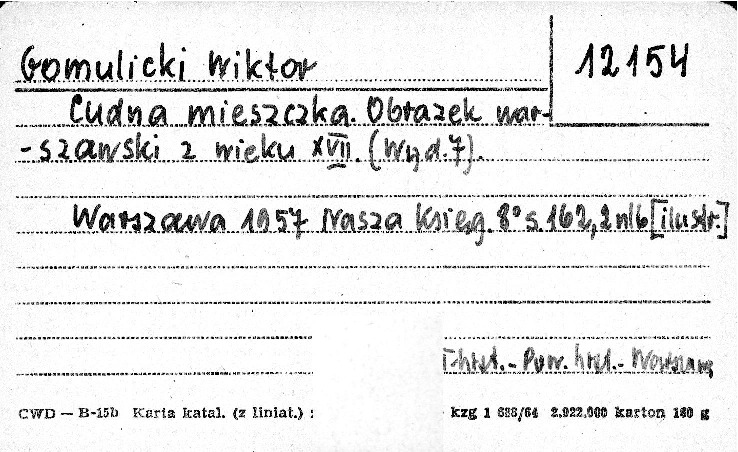 Gomulicki Wiktor
12154
Cudna mieszczka. Obrazek war-
-szawski z wieku XVII. (Wyd. 7).
Warszawa 1957 Nasza Księg. 8° s. 162, 2 nlb [ilustr.]
I-hist. - Pow. hist. - Warszawa
CWD — B-15b Karta katal. (z liniat.) :
kzg 1 688/64 2.922,000 karton 180 g